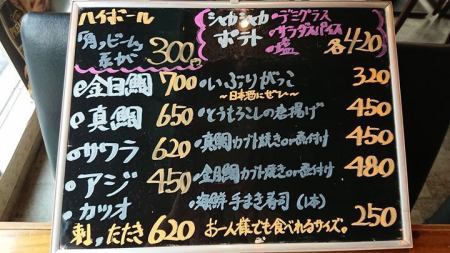 ハイボール
「角」ビームが 300円
シャカシャカポテト
・デミグラス
・サラダスパイス
・塩
各420
・金目鯛 700
・真鯛 650
・サワラ 620
・アジ 450
・カツオ
刺, たたき 620
・いぶりがっこ 320
～日本酒にぜひ～
・とうもろこしの唐揚げ 450
・真鯛カブト焼きor煮付け 450
・金目鯛カブト焼きor煮付け 480
・海鮮手まき寿司(1本)
お一人様でも食べれるサイズ。250